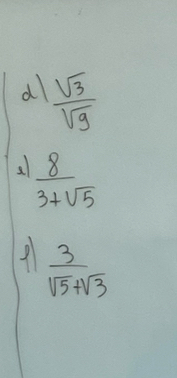 d) √3/√9
e) 8/(3+√5)
f) 3/(√5+√3)